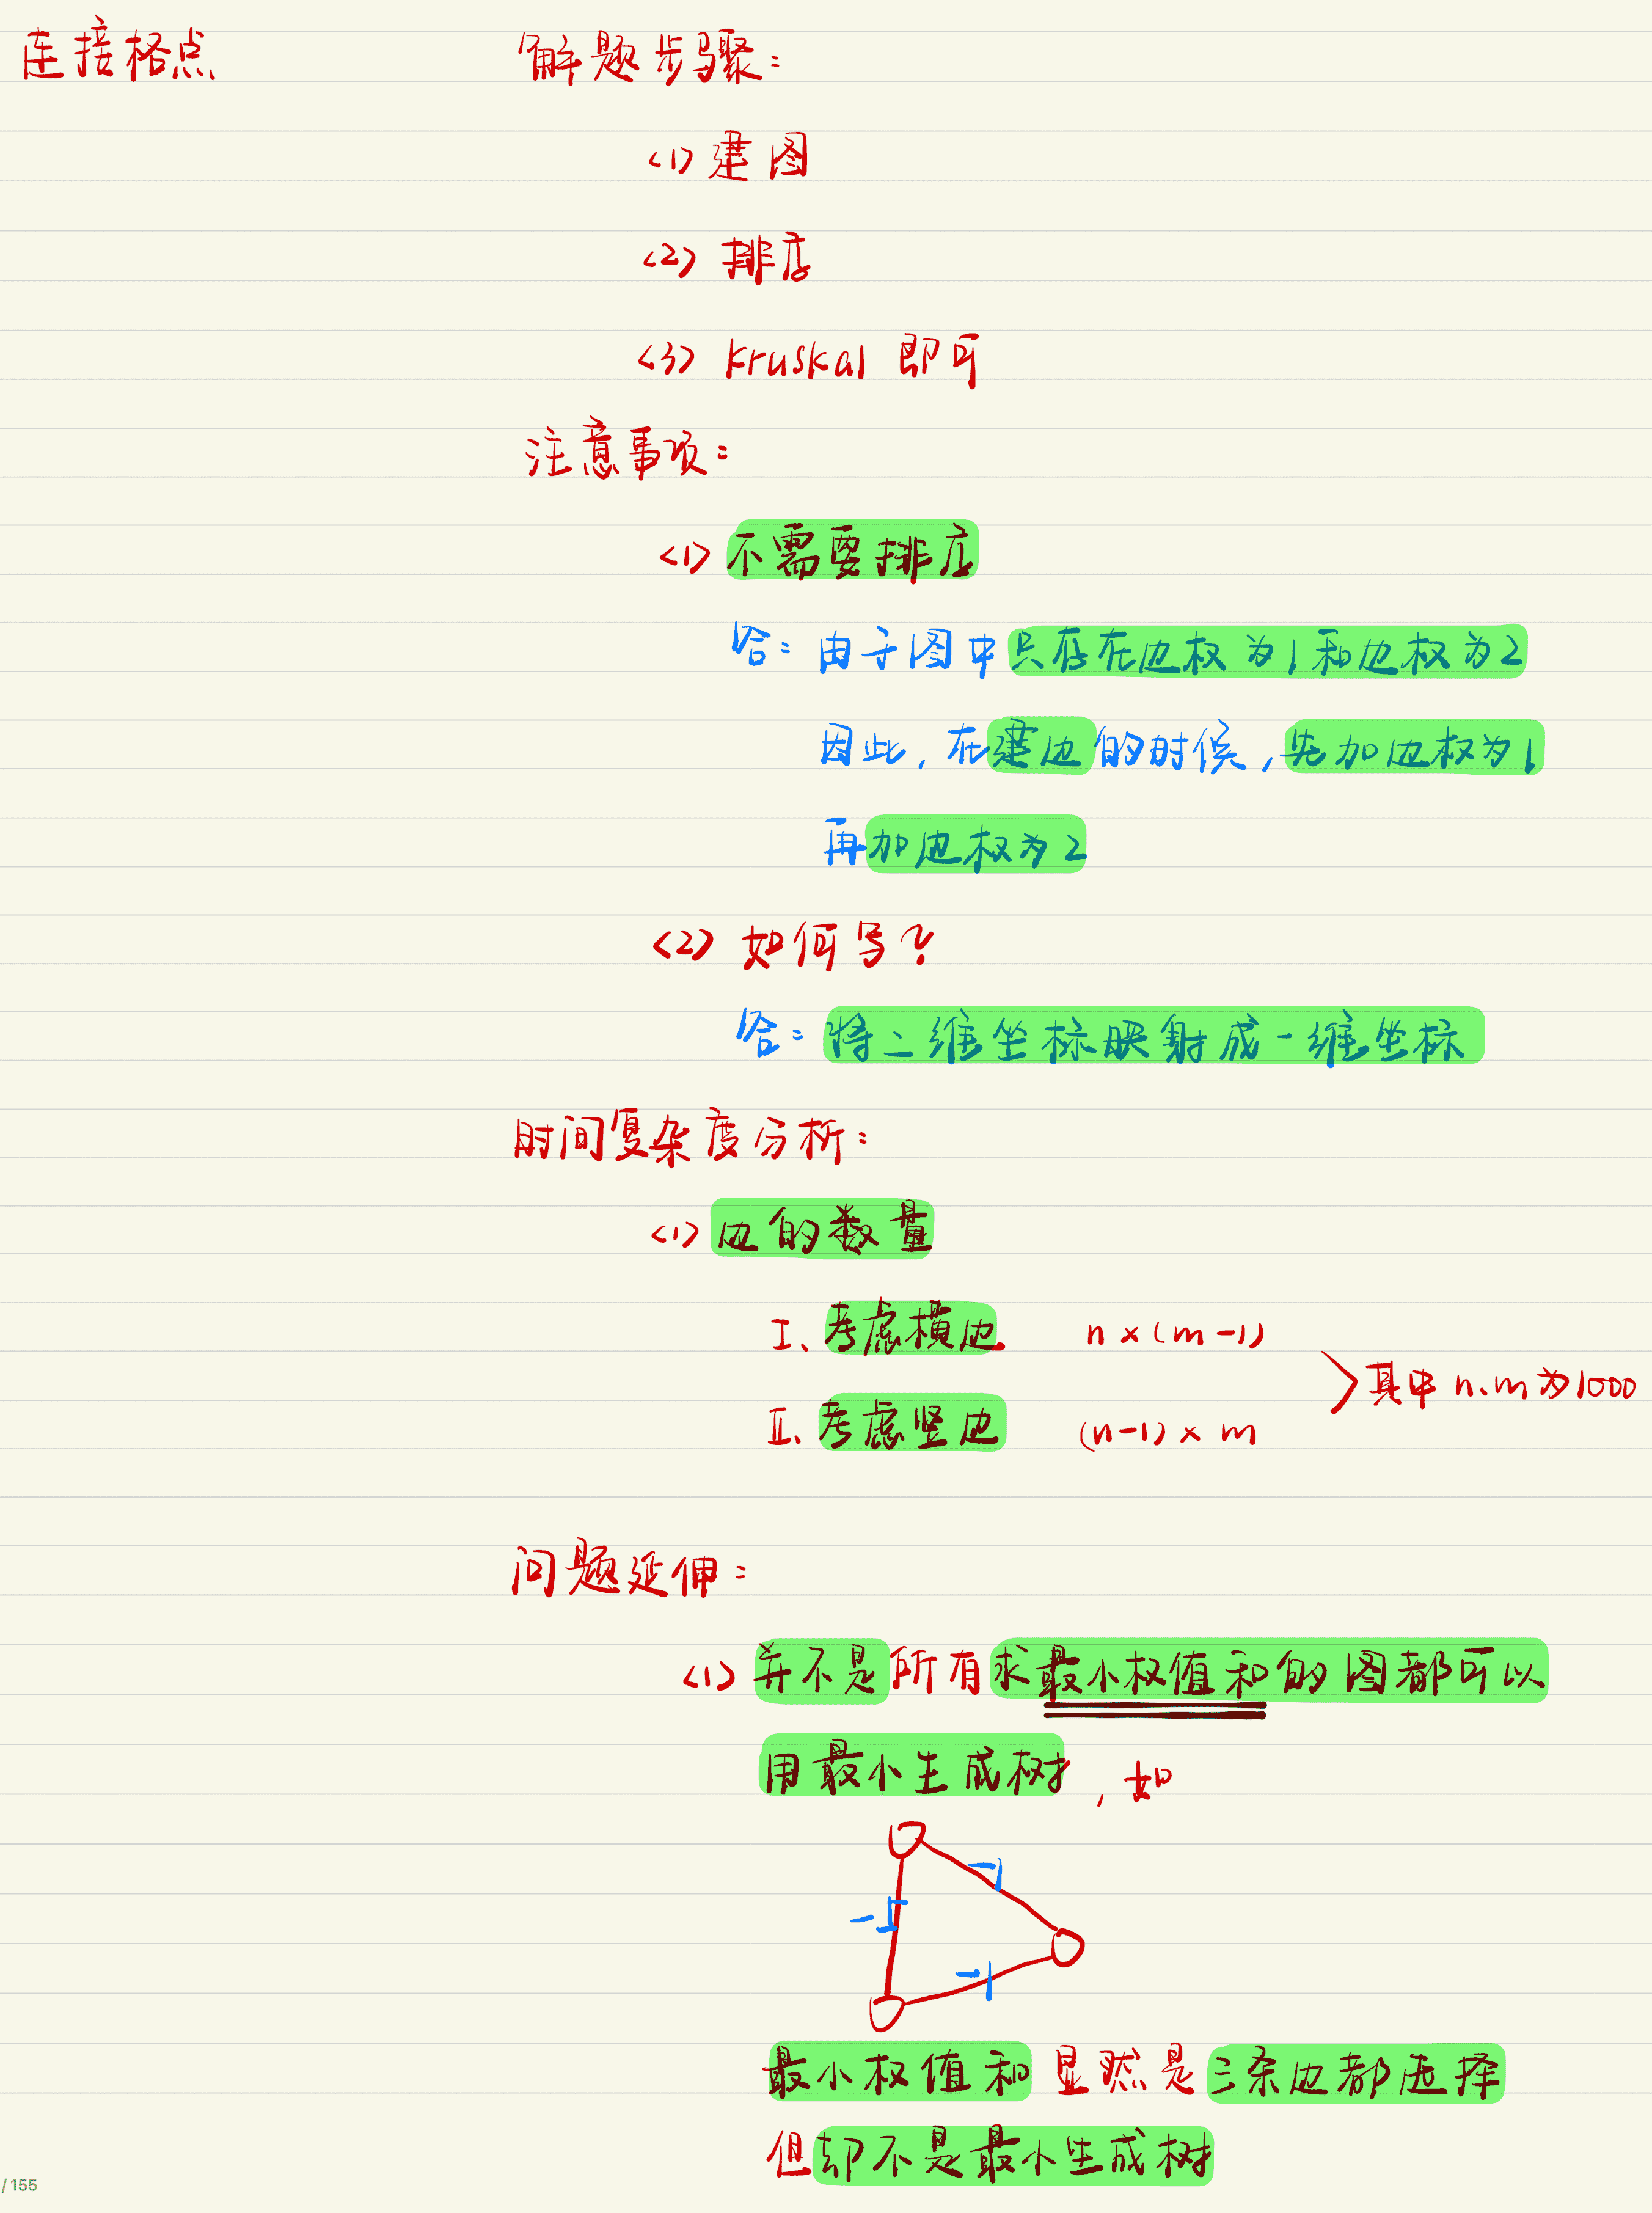 连接格点
解题步骤:
<1> 建图
<2> 排序
<3> kruskal 即可
注意事项:
<1> 不需要排序
答: 由于图中只存在边权为1和边权为2
因此, 在建边的时候, 先加边权为1
再加边权为2
<2> 如何写?
答: 将二维坐标映射成一维坐标
时间复杂度分析:
<1> 边的数量
I、考虑横边 n×(m-1)
其中 n、m为1000
II、考虑竖边 (n-1)×m
问题延伸:
<1> 并不是所有求最小权值和的图都可以
用最小生成树, 如
-1
-1
-1
最小权值和显然是三条边都选择
但却不是最小生成树
/155